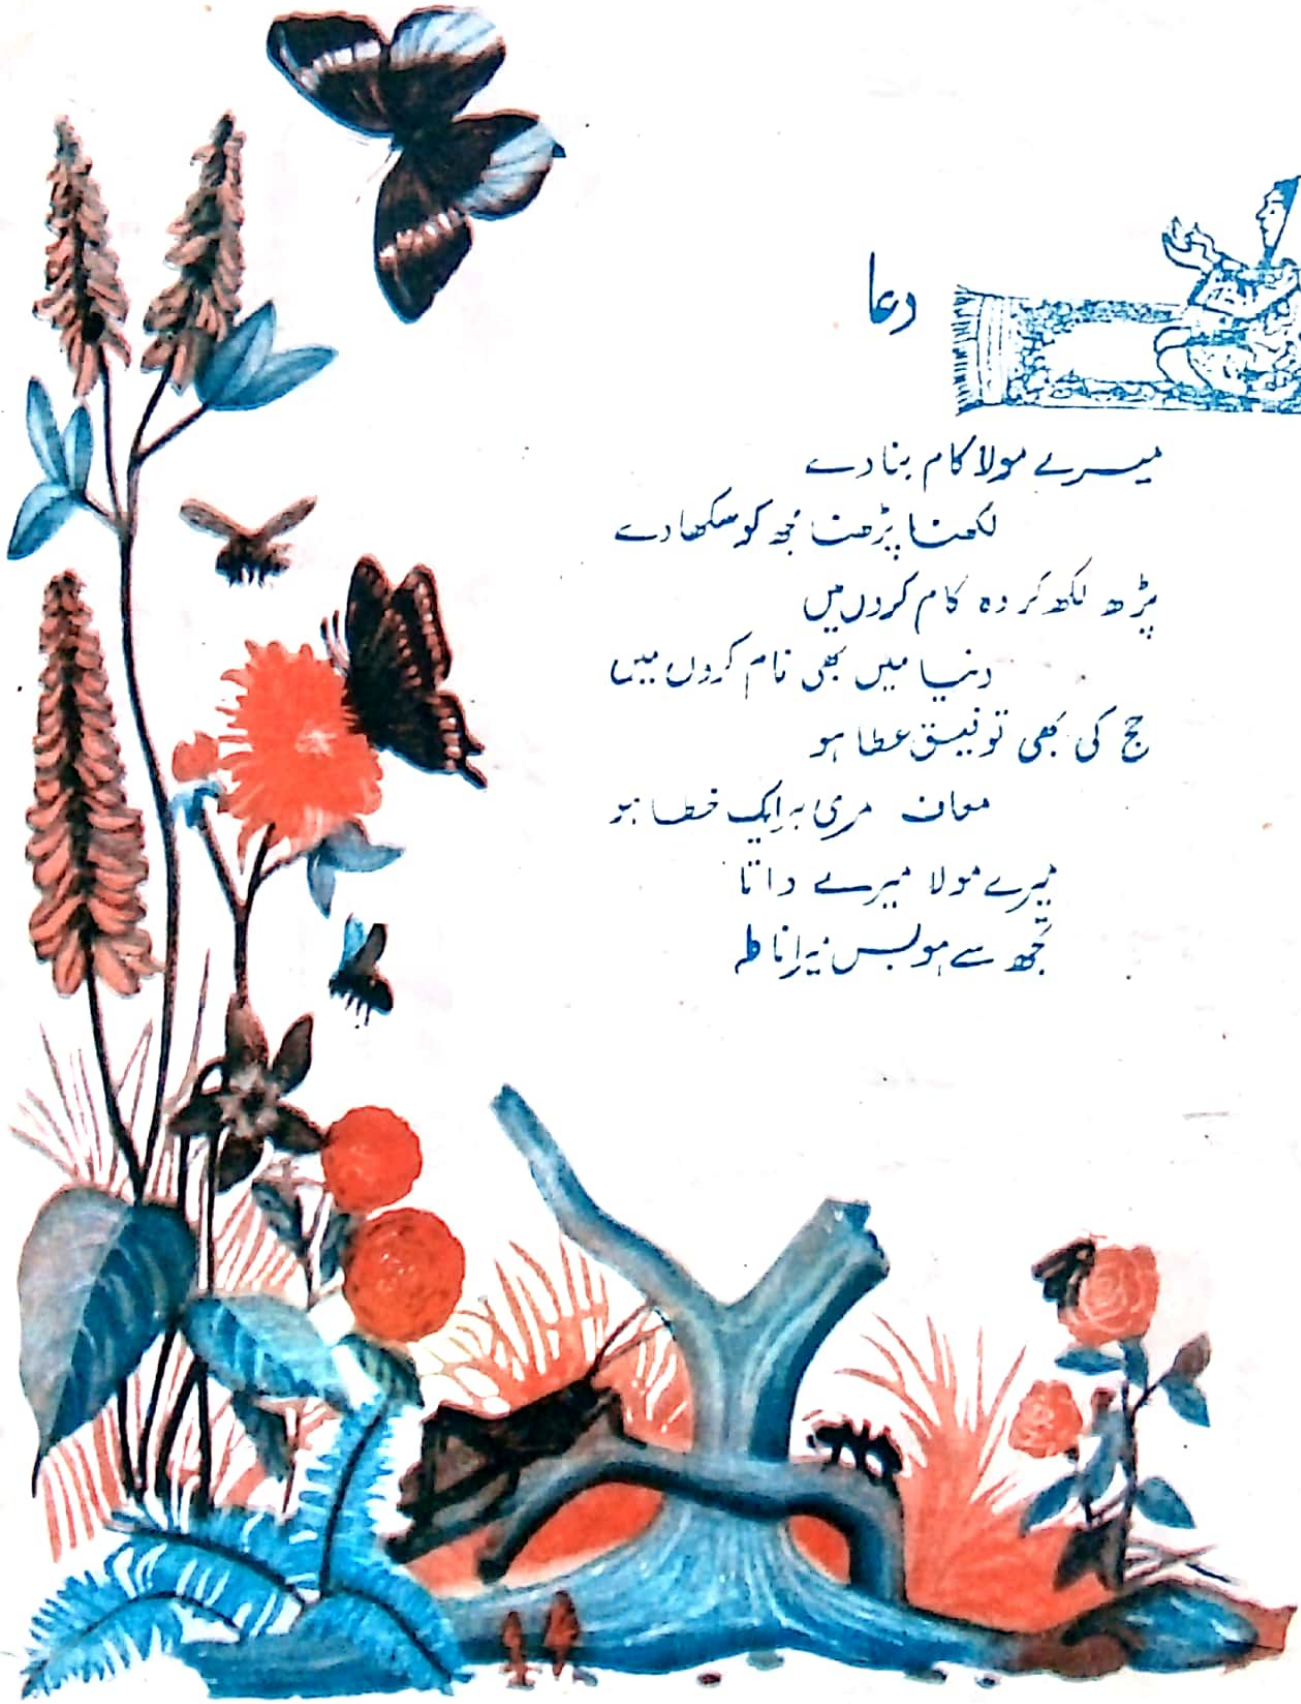 دعا
میرے مولا کام بنا دے
لکھنا پڑھنا مجھ کو سکھا دے
پڑھ لکھ کر وہ کام کروں میں
دنیا میں بھی نام کروں میں
حج کی بھی توفیق عطا ہو
معاف مری ہر ایک خطا ہو
میرے مولا میرے داتا
تجھ سے ہو بس میرا ناطہ